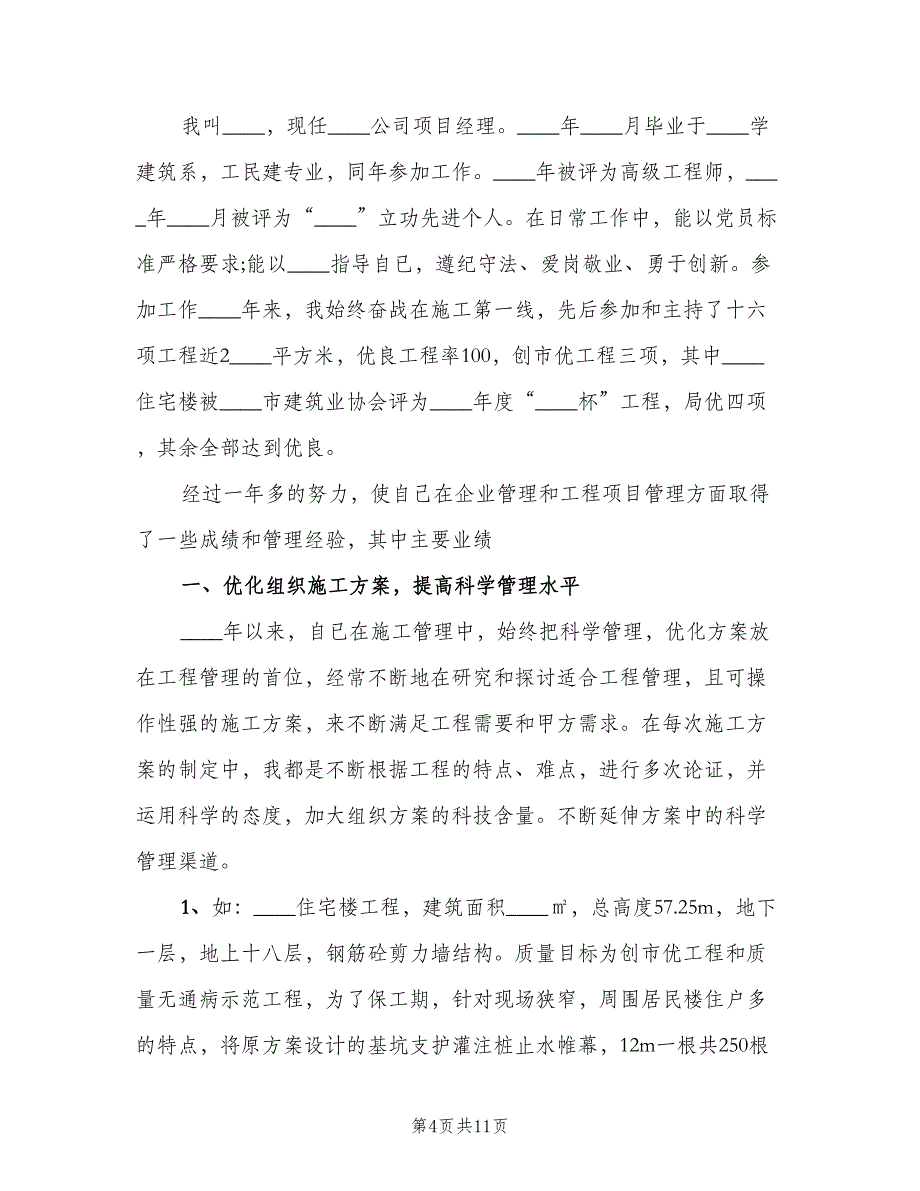 我叫____，现任____公司项目经理。____年____月毕业于____学
建筑系，工民建专业，同年参加工作。____年被评为高级工程师，___
_年____月被评为“____”立功先进个人。在日常工作中，能以党员标
准严格要求;能以____指导自己，遵纪守法、爱岗敬业、勇于创新。参
加工作____年来，我始终奋战在施工第一线，先后参加和主持了十六
项工程近2____平方米，优良工程率100，创市优工程三项，其中____
住宅楼被____市建筑业协会评为____年度“____杯”工程，局优四项
，其余全部达到优良。
经过一年多的努力，使自己在企业管理和工程项目管理方面取得
了一些成绩和管理经验，其中主要业绩
一、优化组织施工方案，提高科学管理水平
____年以来，自己在施工管理中，始终把科学管理，优化方案放
在工程管理的首位，经常不断地在研究和探讨适合工程管理，且可操
作性强的施工方案，来不断满足工程需要和甲方需求。在每次施工方
案的制定中，我都是不断根据工程的特点、难点，进行多次论证，并
运用科学的态度，加大组织方案的科技含量。不断延伸方案中的科学
管理渠道。
1、如：____住宅楼工程，建筑面积____㎡，总高度57.25m，地下
一层，地上十八层，钢筋砼剪力墙结构。质量目标为创市优工程和质
量无通病示范工程，为了保工期，针对现场狭窄，周围居民楼住户多
的特点，将原方案设计的基坑支护灌注桩止水帷幕，12m一根共250根
第4页共11页